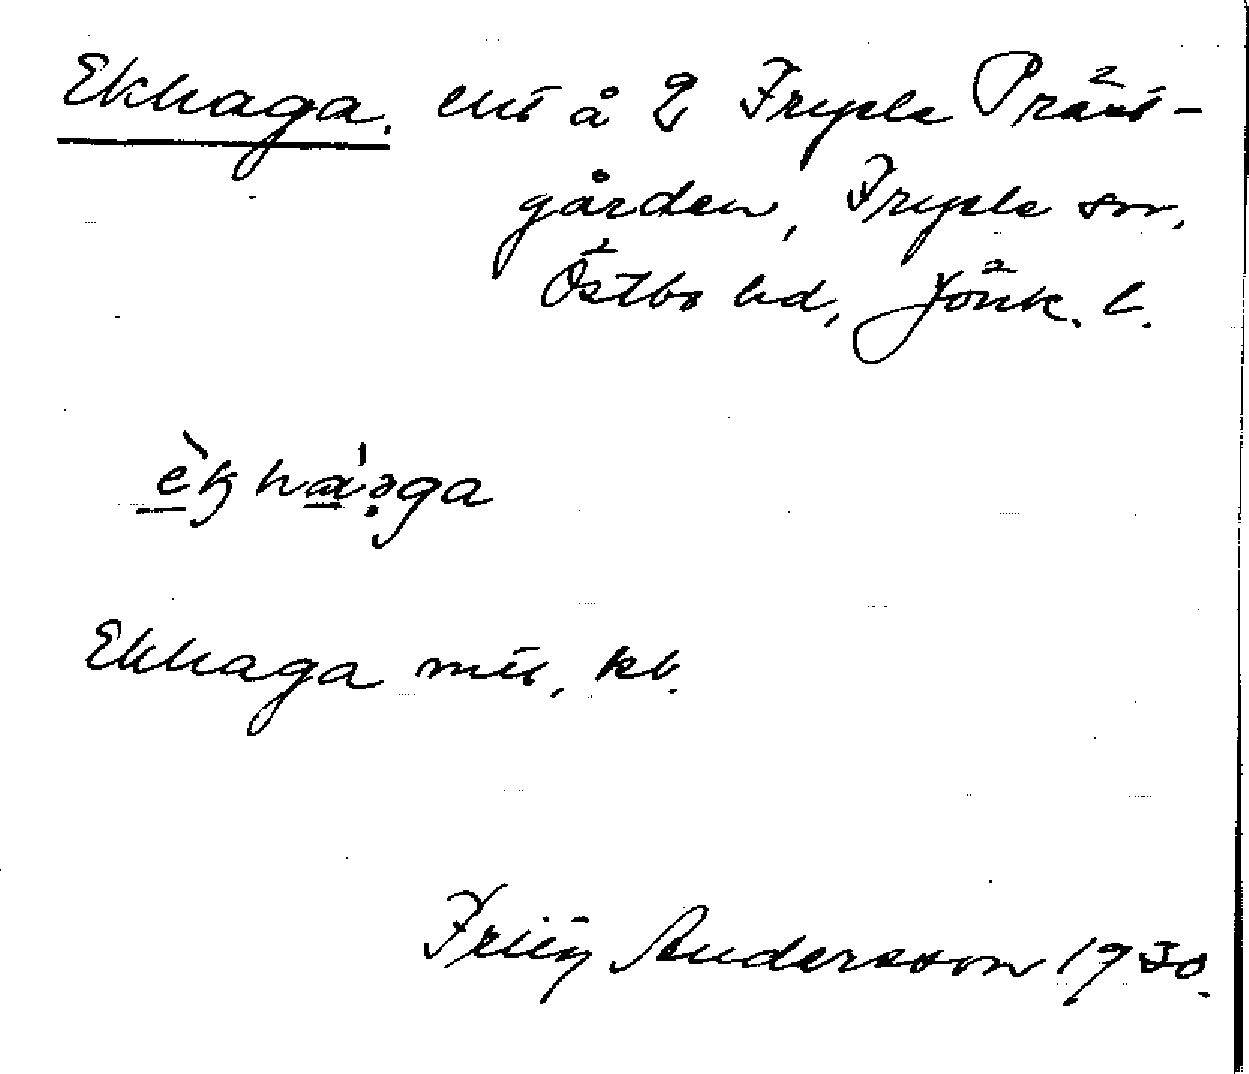 Ekhaga. lht å 2 Fryele Präst-
gården, Fryele sn,
Östbo hd, Jönk. l.
Ekhaga mtl, kb.
Fritz Andersson 1930.